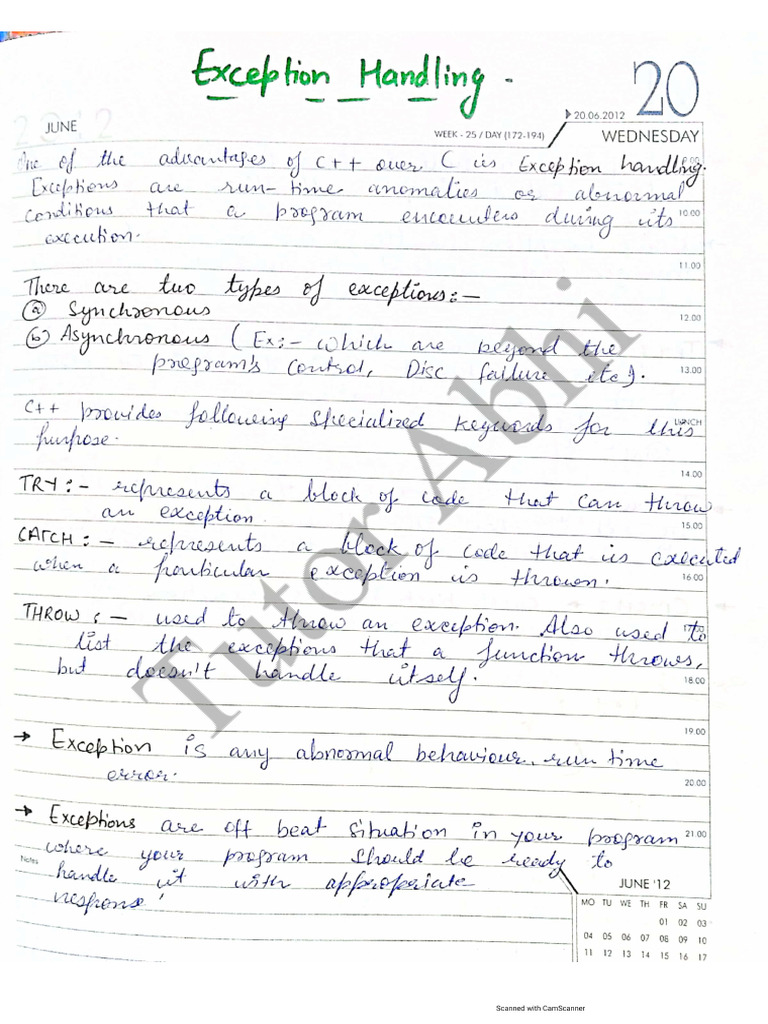 Exception Handling.
20
20.06.2012
JUNE
WEEK - 25 / DAY (172-194)
WEDNESDAY
One of the advantages of C++ over C is Exception handling.
Exceptions are run-time anomalies or abnormal
conditions that a program encounters during its
10.00
execution.
11.00
There are two types of exceptions:-
(a) Synchronous
12.00
(b) Asynchronous (Ex:- which are beyond the
program's control, Disc failure etc).
13.00
C++ provides following specialized keywords for this
LUNCH
purpose.
14.00
TRY:- represents a block of code that can throw
an exception.
15.00
CATCH:- represents a block of code that is executed
when a particular exception is thrown.
16.00
THROW:- used to throw an exception. Also used to
list the exceptions that a function throws,
but doesn't handle itself.
18.00
19.00
→ Exception is any abnormal behaviour, run time
error.
20.00
→ Exceptions are off beat situation in your program
21.00
where your program should be ready to
Notes
handle it with appropriate
response.
JUNE '12
MO TU WE TH FR SA SU
01 02 03
04 05 06 07 08 09 10
11 12 13 14 15 16 17
Tutor Abhi
Scanned with CamScanner